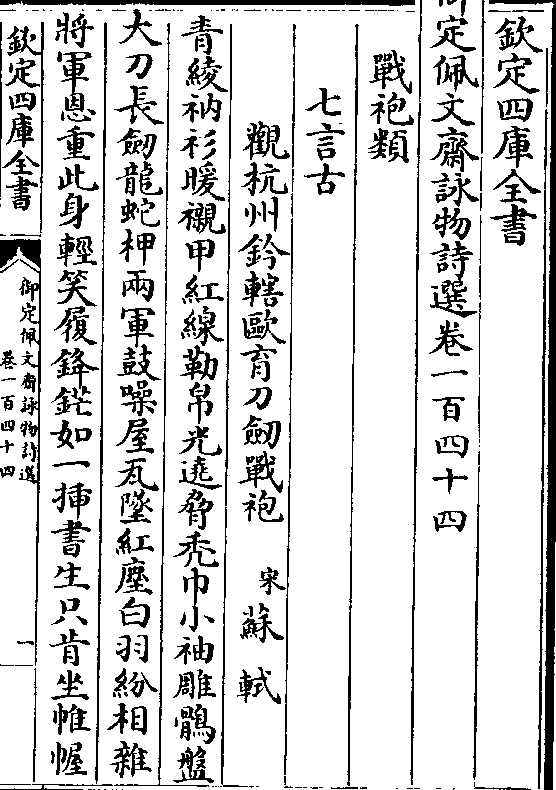 欽定四庫全書
御定佩文齋詠物詩選卷一百四十四
戰袍類
七言古
觀杭州鈐轄歐育刀劒戰袍 宋 蘇軾
青綾衲衫暖襯甲紅線勒帛光遶脅秃巾小袖雕鶻盤
大刀長劒龍蛇柙兩軍鼓噪屋瓦墜紅塵白羽紛相雜
將軍恩重此身輕笑履鋒鋩如一揷書生只肯坐帷幄
欽定四庫全書
御定佩文齋詠物詩選
卷一百四十四
一